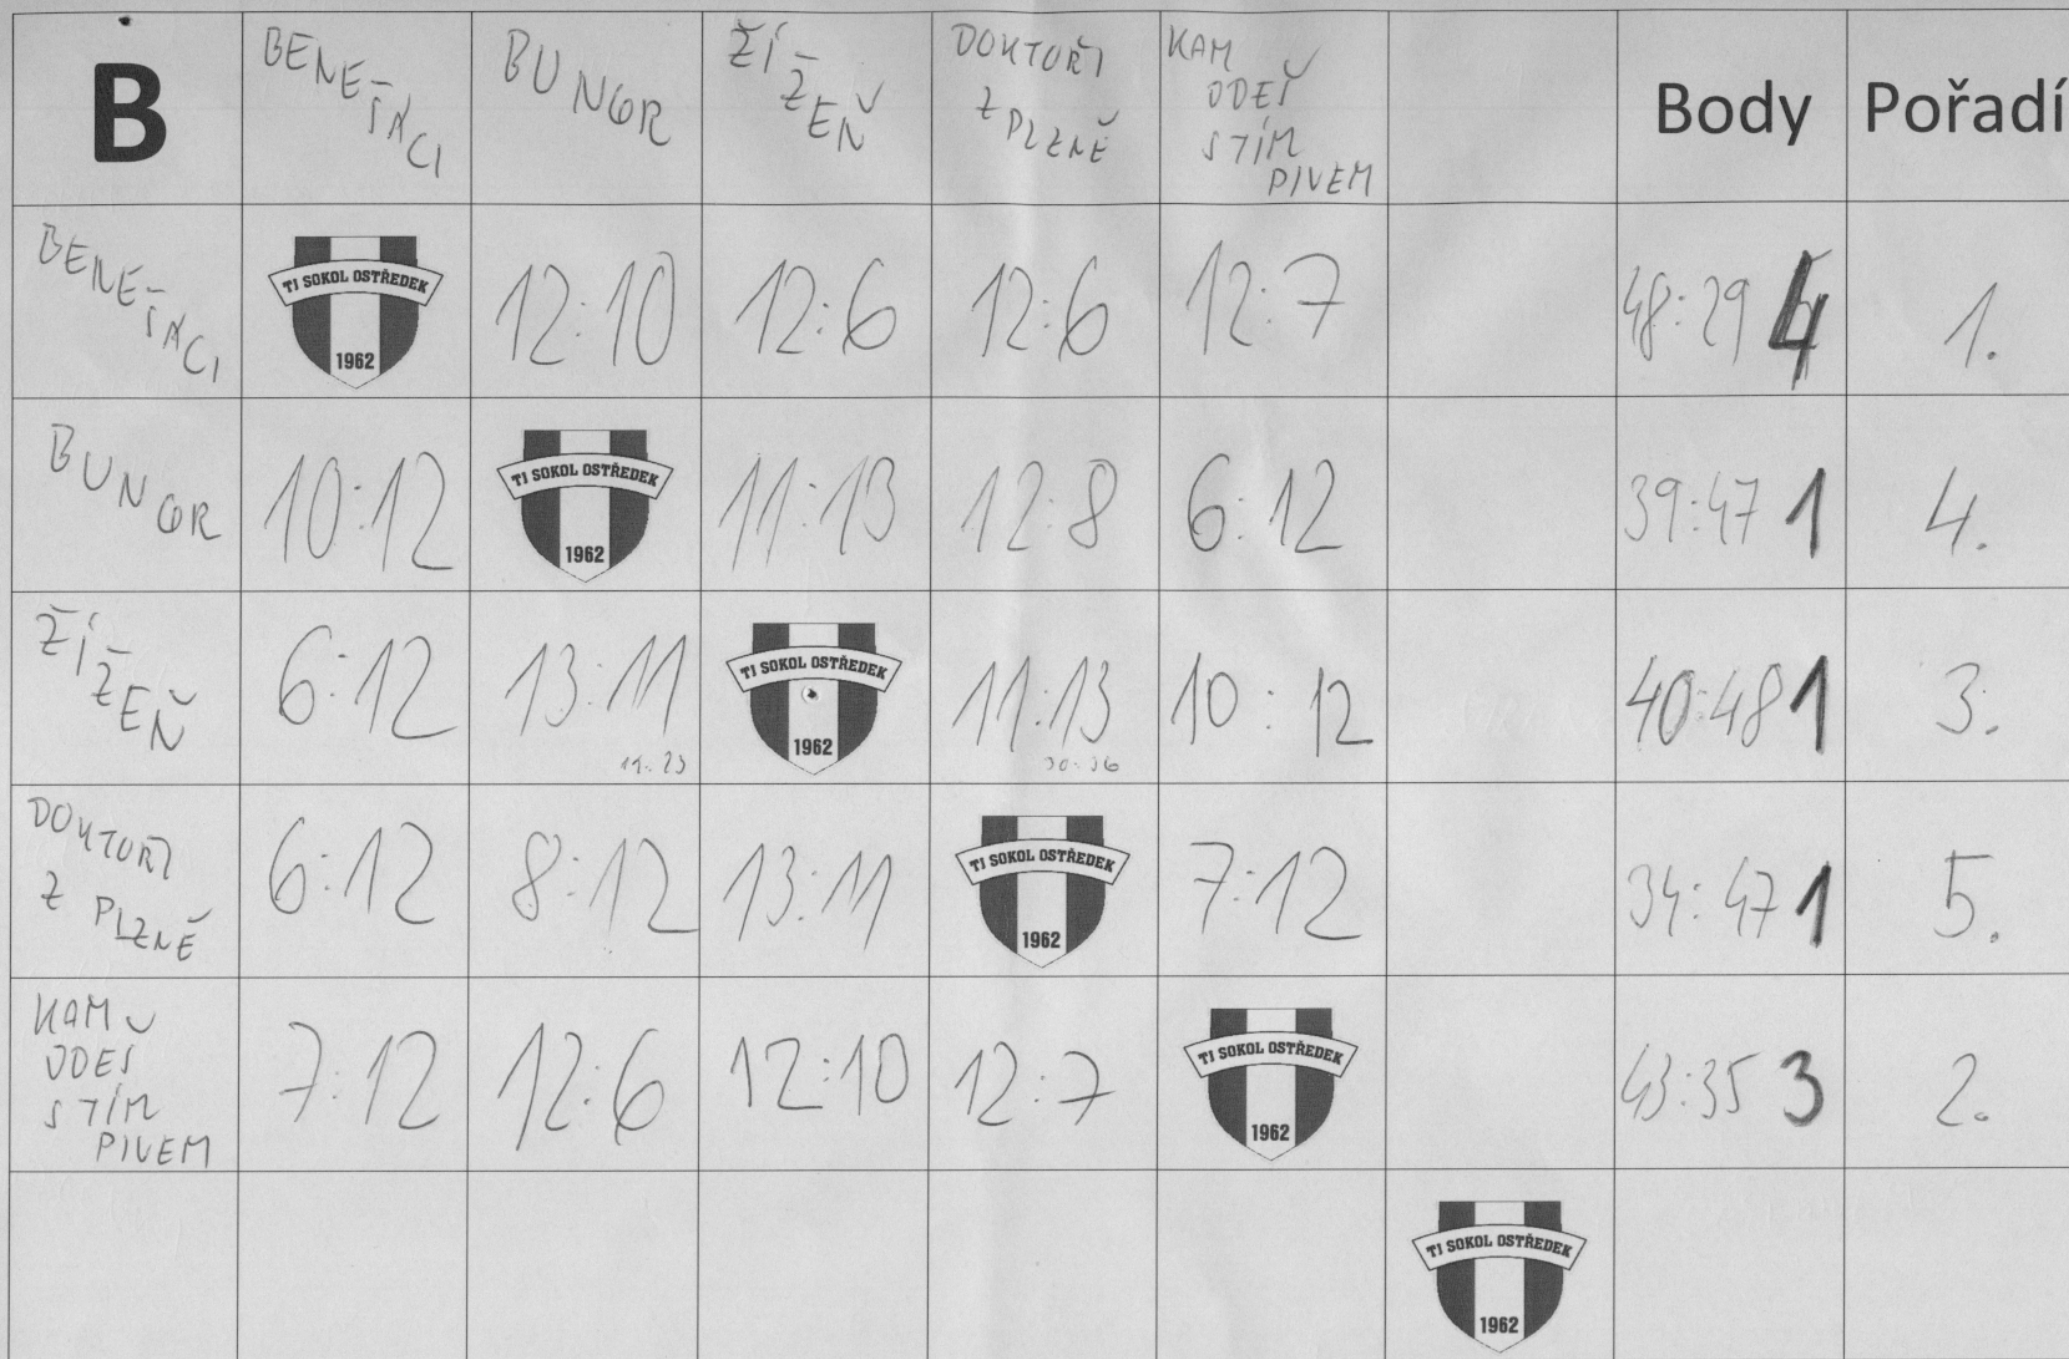 B BENEŤÁCI BUNGR ŽÍZEŇ DOKTOŘI Z PLZNĚ KAM ODEŠ S TÍM PIVEM Body Pořadí
BENEŤÁCI TJ SOKOL OSTŘEDEK 1962 12:10 12:6 12:6 12:7 48:29 4 1.
BUNGR 10:12 TJ SOKOL OSTŘEDEK 1962 11:13 12:8 6:12 39:47 1 4.
ŽÍZEŇ 6:12 13:11 TJ SOKOL OSTŘEDEK 1962 11:13 30:36 10:12 40:48 1 3.
DOKTOŘI Z PLZNĚ 6:12 8:12 13:11 TJ SOKOL OSTŘEDEK 1962 7:12 34:47 1 5.
KAM ODEŠ S TÍM PIVEM 7:12 12:6 12:10 12:7 TJ SOKOL OSTŘEDEK 1962 43:35 3 2.
TJ SOKOL OSTŘEDEK 1962